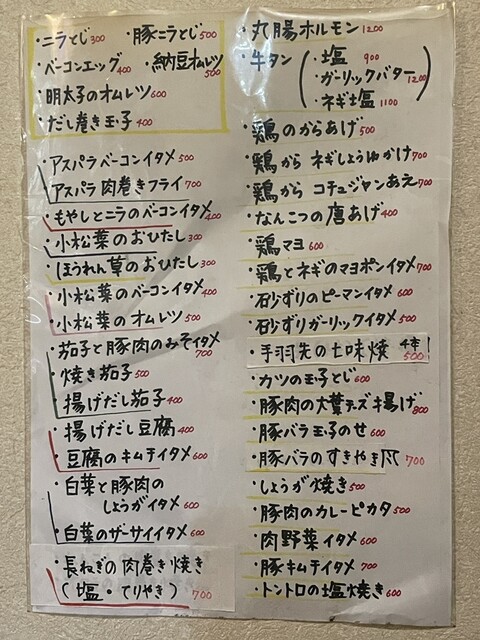 ・ニラとじ300 ・豚ニラとじ500
・ベーコンエッグ400 ・納豆オムレツ500
・明太子のオムレツ600
・だし巻き玉子400
・アスパラベーコンイタメ500
・アスパラ肉巻きフライ700
・もやしとニラのベーコンイタメ400
・小松菜のおひたし300
・ほうれん草のおひたし300
・小松菜のベーコンイタメ400
・小松菜のオムレツ500
・茄子と豚肉のみそイタメ700
・焼き茄子500
・揚げだし茄子400
・揚げだし豆腐400
・豆腐のキムチイタメ600
・白菜と豚肉の
しょうがイタメ600
・白菜のザーサイイタメ600
・長ねぎの肉巻き焼き
(塩・てりやき)700
・丸腸ホルモン1200
・牛タン(・塩900
・ガーリックバター1200
・ネギ塩1100)
・鶏のからあげ500
・鶏から ネギしょうゆかけ700
・鶏から コチュジャンあえ700
・なんこつの唐あげ400
・鶏マヨ600
・鶏とネギのマヨポンイタメ700
・砂ずりのピーマンイタメ600
・砂ずりガーリックイタメ500
・手羽先の七味焼 4本!500
・カツの玉子とじ600
・豚肉の大葉チーズ揚げ800
・豚バラ玉子のせ600
・豚バラのすきやき風700
・しょうが焼き500
・豚肉のカレーピカタ500
・肉野菜イタメ600
・豚キムチイタメ700
・トントロの塩焼き600